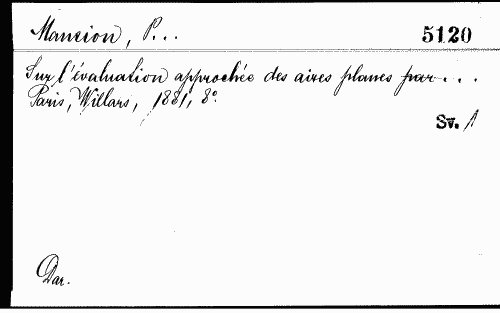 Mansion, P...
5120
Sur l'évaluation approchée des aires planes par...
Paris, Willars, 1881, 8°.
Sv. A
Dar.